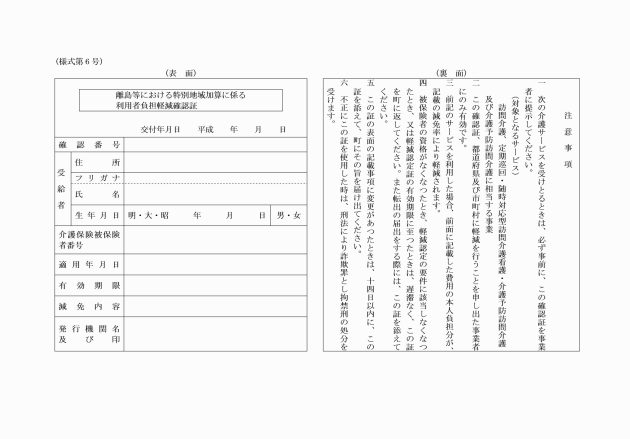 （様式第６号）
（表　面）
離島等における特別地域加算に係る
利用者負担軽減確認証
交付年月日　平成　　年　　月　　日
確認番号
受給者
住所
フリガナ
氏名
生年月日
明・大・昭　　　年　　　月　　　日
男・女
介護保険被保険
者番号
適用年月日
有効期限
減免内容
発行機関名
及び印
（裏　面）
注意事項
一　次の介護サービスを受けとるときは、必ず事前に、この確認証を事業
者に提示してください。
（対象となるサービス）
訪問介護、定期巡回・随時対応型訪問介護看護・介護予防訪問介護
及び介護予防訪問介護に相当する事業
二　この確認証、都道府県及び市町村に軽減を行うことを申し出た事業者
にのみ有効です。
三　前記のサービスを利用した場合、前面に記載した費用の本人負担分が、
記載の減免率により軽減されます。
四　被保険者の資格がなくなつたとき、軽減認定の要件に該当しなくなつ
たとき、又は軽減認定証の有効期限に至つたときは、遅滞なく、この証
を町に返してください。また転出の届出をする際には、この証を添えて
ください。
五　この証の表面の記載事項に変更があつたときは、十四日以内に、この
証を添えて、町にその旨を届け出てください。
六　不正にこの証を使用した時は、刑法により詐欺罪とし拘禁刑の処分を
受けます。